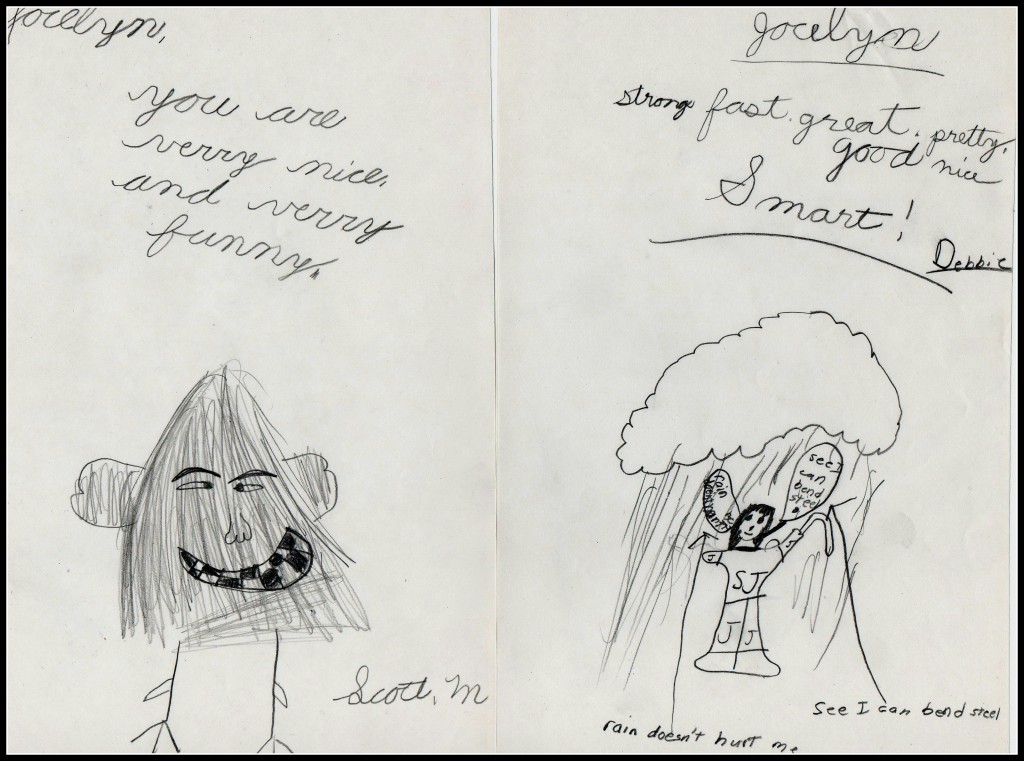 Jocelyn,
you are
verry nice,
and verry
funny.
Scott, M
Jocelyn
strong fast. great. pretty.
good nice
Smart!
Debbie
see I
can
bend
steel
rain
SJ
J
J
J J
See I can bend steel
rain doesn't hurt me